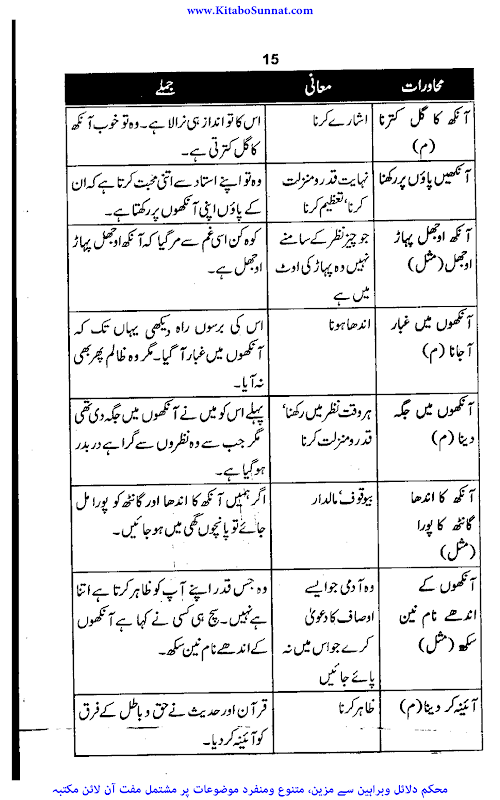 www.KitaboSunnat.com
15
محاورات	معانی	جملے
آنکھ کا گل کترنا	اشارے کرنا	اس کا تو انداز ہی نرالا ہے۔ وہ تو خوب آنکھ
(م)		کا گل کترتی ہے۔
آنکھیں پاؤں پر رکھنا	نہایت قدر و منزلت	وہ تو اپنے استاد سے اتنی محبت کرتا ہے کہ ان
	کرنا، تعظیم کرنا	کے پاؤں اپنی آنکھوں پر رکھتا ہے۔
آنکھ اوجھل پہاڑ	جو چیز نظر کے سامنے	کوہ کن اسی غم سے مر گیا کہ آنکھ اوجھل پہاڑ
اوجھل (مثل)	نہیں وہ پہاڑ کی اوٹ	اوجھل ہے۔
	میں ہے
آنکھوں میں غبار	اندھا ہونا	اس کی برسوں راہ دیکھی یہاں تک کہ
آ جانا (م)		آنکھوں میں غبار آ گیا۔ مگر وہ ظالم پھر بھی
		نہ آیا۔
آنکھوں میں جگہ	ہر وقت نظر میں رکھنا،	پہلے اس کو میں نے آنکھوں میں جگہ دی تھی
دینا (م)	قدر و منزلت کرنا	مگر جب سے وہ نظروں سے گرا ہے در بدر
		ہو گیا ہے۔
آنکھ کا اندھا	بیوقوف، مالدار	اگر ہمیں آنکھ کا اندھا اور گانٹھ کو پورا مل
گانٹھ کا پورا		جائے تو پانچوں گھی میں ہو جائیں۔
(مثل)
آنکھوں کے	وہ آدمی جو ایسے	وہ جس قدر اپنے آپ کو ظاہر کرتا ہے اتنا
اندھے نام نین	اوصاف کا دعویٰ	ہے نہیں۔ سچ ہی کسی نے کہا ہے آنکھوں
سکھ (مثل)	کرے جو اس میں نہ	کے اندھے نام نین سکھ۔
	پائے جائیں
آئینہ کر دینا (م)	ظاہر کرنا	قرآن اور حدیث نے حق و باطل کے فرق
		کو آئینہ کر دیا۔
محکم دلائل وبراہین سے مزین، متنوع ومنفرد موضوعات پر مشتمل مفت آن لائن مکتبہ